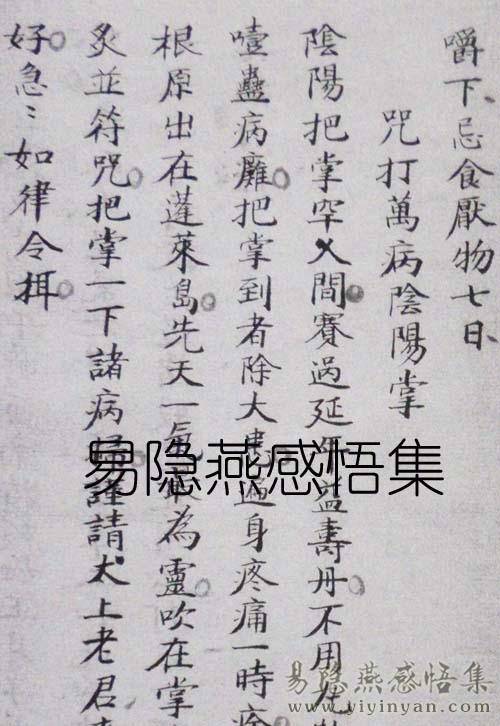 嚼下、忌食厭物七日、
咒打萬病陰陽掌
陰陽把掌罕人間賽過延年益壽丹不用
噎蠱病癱把掌到者除大遍身疼痛一時
根原出在蓬萊島先天一氣為靈吹在掌
炙並符咒把掌一下諸病謹請太上老君
好急〻如律令
易隐燕感悟集
易隐燕感悟集
www.yiyinyan.com